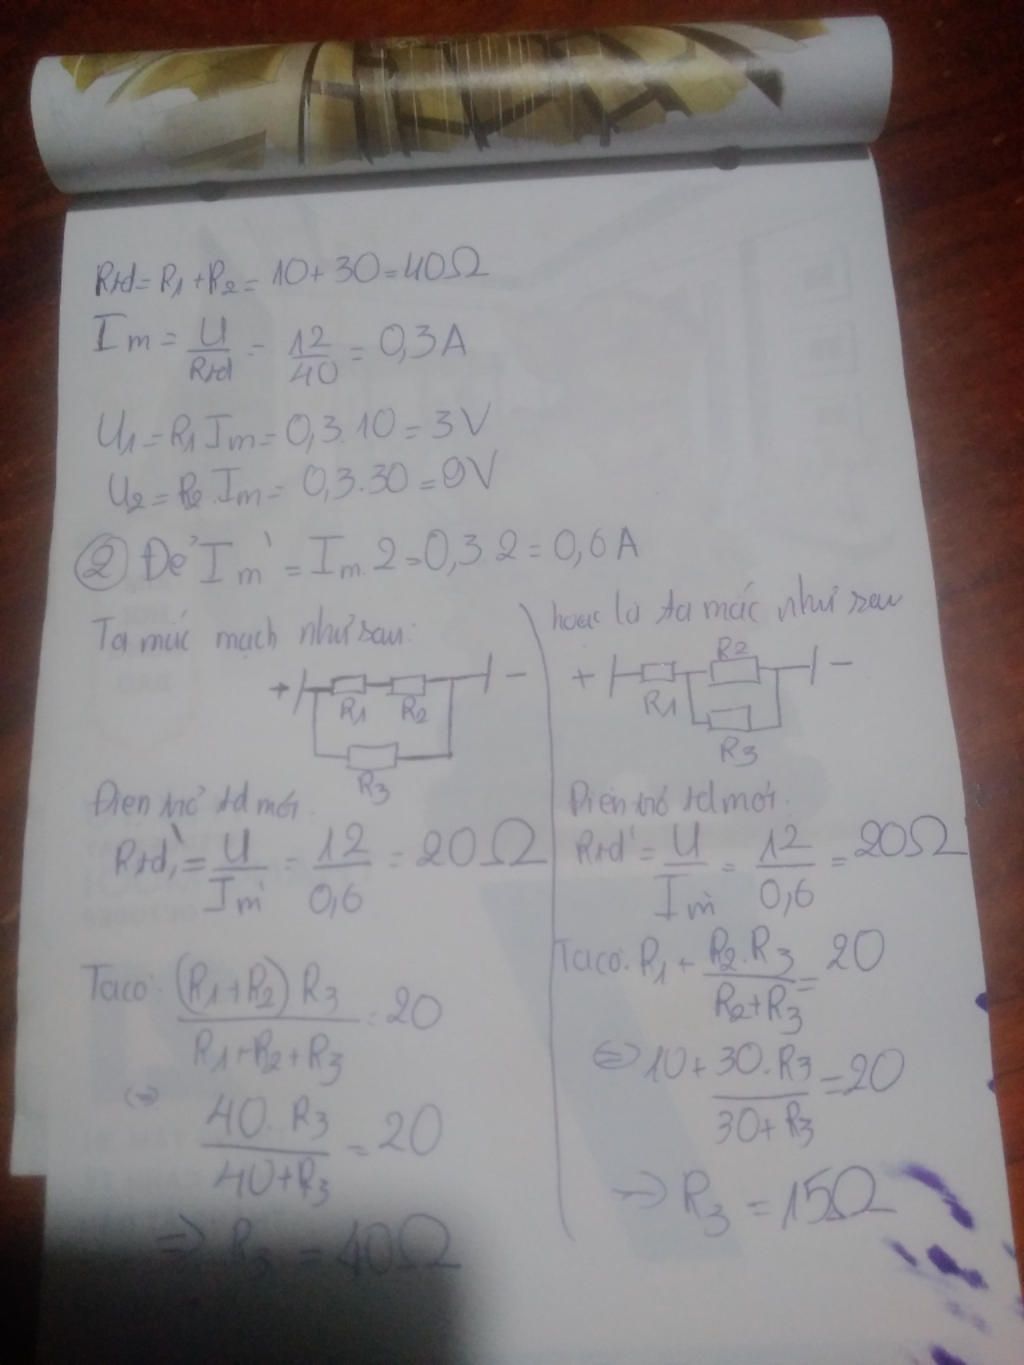 Rtđ = R1 + R2 = 10 + 30 = 40Ω
Im = U/Rtđ = 12/40 = 0,3A
U1 = R1 Im = 0,3.10 = 3V
U2 = R2.Im = 0,3.30 = 9V
② Để Im' = Im.2 = 0,3.2 = 0,6A
Ta mắc mạch như sau:
+ R1 R2 -
R3
Điện trở tđ mới.
Rtđ' = U/Im' = 12/0,6 = 20Ω
Ta có: (R1+R2)R3/(R1+R2+R3) = 20
⇔ 40.R3/(40+R3) = 20
=> R3 = 40Ω
hoặc là ta mắc như sau
R2
+ R1 -
R3
Điện trở tđ mới.
Rtđ' = U/Im' = 12/0,6 = 20Ω
Ta có: R1 + R2.R3/(R2+R3) = 20
⇔ 10 + 30.R3/(30+R3) = 20
=> R3 = 15Ω